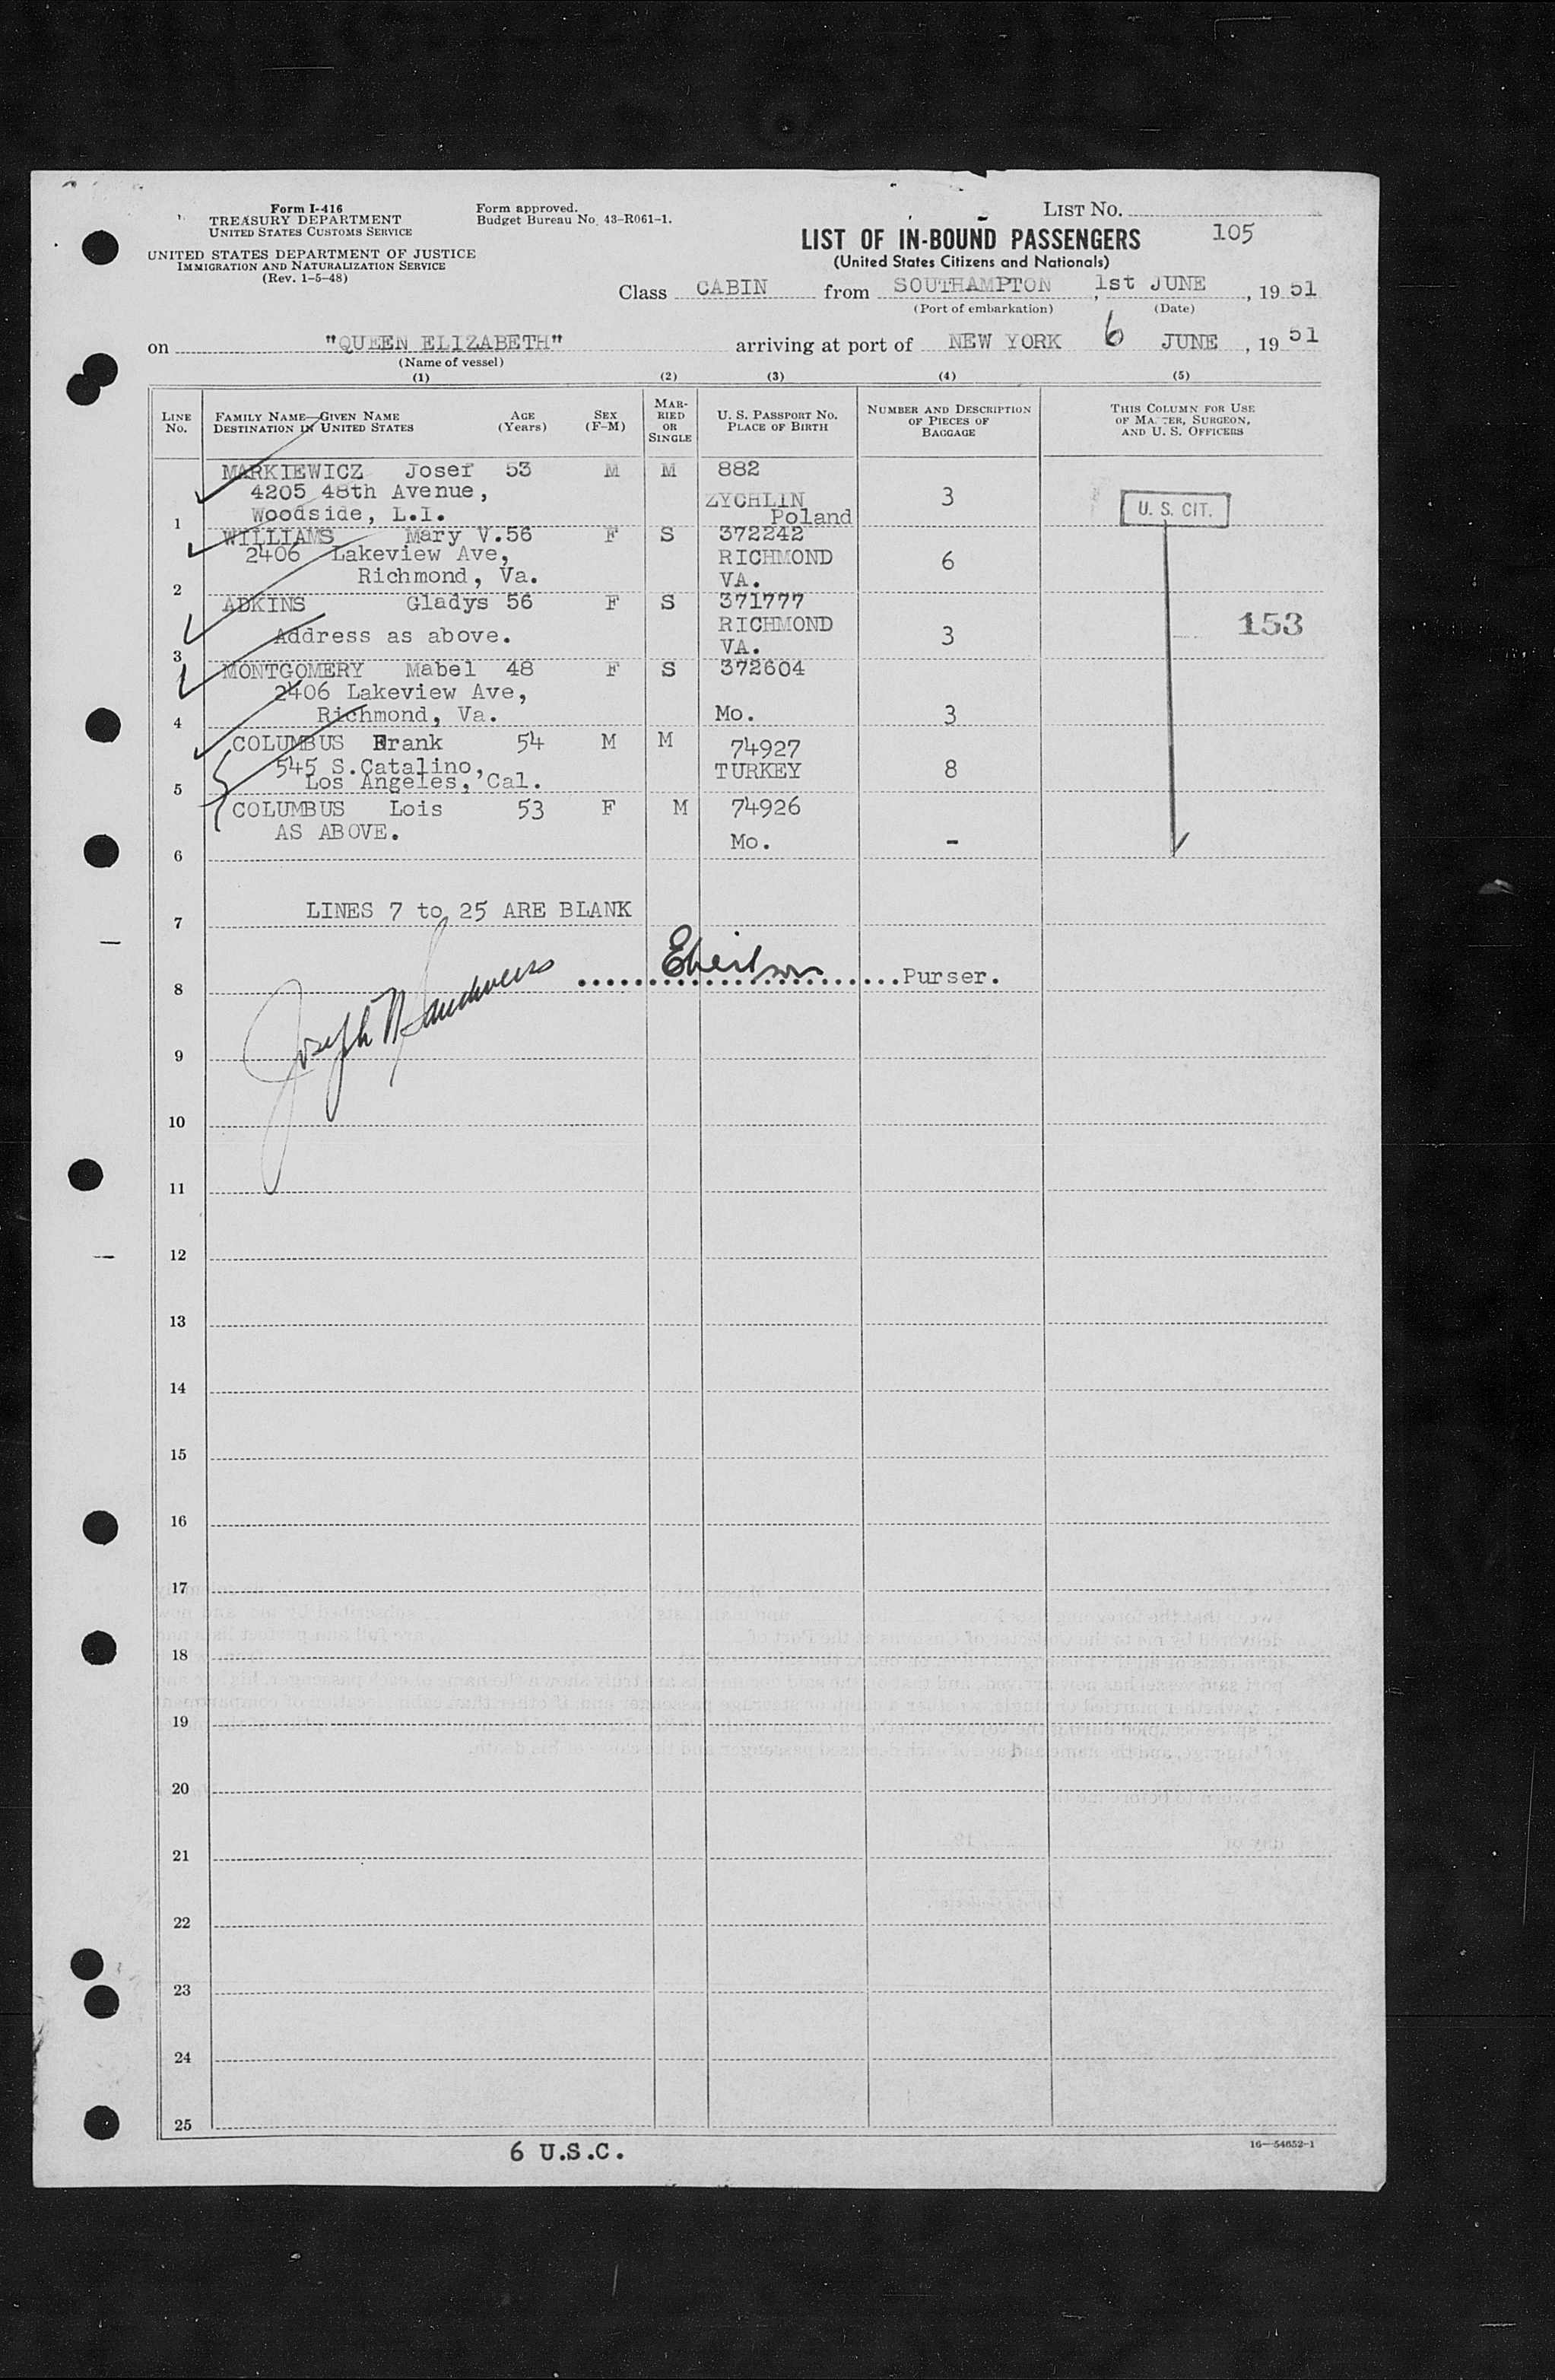 Form I-416
TREASURY DEPARTMENT
UNITED STATES CUSTOMS SERVICE
UNITED STATES DEPARTMENT OF JUSTICE
IMMIGRATION AND NATURALIZATION SERVICE
(Rev. 1-5-48)
Form approved.
Budget Bureau No. 43-R061-1.
LIST NO.
105
LIST OF IN-BOUND PASSENGERS
(United States Citizens and Nationals)
Class CABIN from SOUTHAMPTON, 1st JUNE, 1951
(Port of embarkation) (Date)
on "QUEEN ELIZABETH" arriving at port of NEW YORK 6 JUNE, 1951
(Name of vessel)
(1) (2) (3) (4) (5)
LINE NO.
FAMILY NAME—GIVEN NAME
DESTINATION IN UNITED STATES
AGE
(Years)
SEX
(F-M)
MAR-
RIED
OR
SINGLE
U. S. PASSPORT NO.
PLACE OF BIRTH
NUMBER AND DESCRIPTION
OF PIECES OF
BAGGAGE
THIS COLUMN FOR USE
OF MASTER, SURGEON,
AND U. S. OFFICERS
MARKIEWICZ Josef 53 M M 882
4205 48th Avenue, ZYCHLIN 3 U. S. CIT.
1 Woodside, L.I. Poland
WILLIAMS Mary V. 56 F S 372242
2406 Lakeview Ave, RICHMOND 6
2 Richmond, Va. VA.
ADKINS Gladys 56 F S 371777
RICHMOND 153
Address as above. 3
3 VA.
MONTGOMERY Mabel 48 F S 372604
2406 Lakeview Ave,
4 Richmond, Va. Mo. 3
COLUMBUS Frank 54 M M 74927
545 S.Catalino, TURKEY 8
5 Los Angeles, Cal.
COLUMBUS Lois 53 F M 74926
AS ABOVE. Mo. -
6
LINES 7 to 25 ARE BLANK
7
Purser.
8
Joseph
9
10
11
12
13
14
15
16
17
18
19
20
21
22
23
24
25
6 U.S.C.
16—54652-1